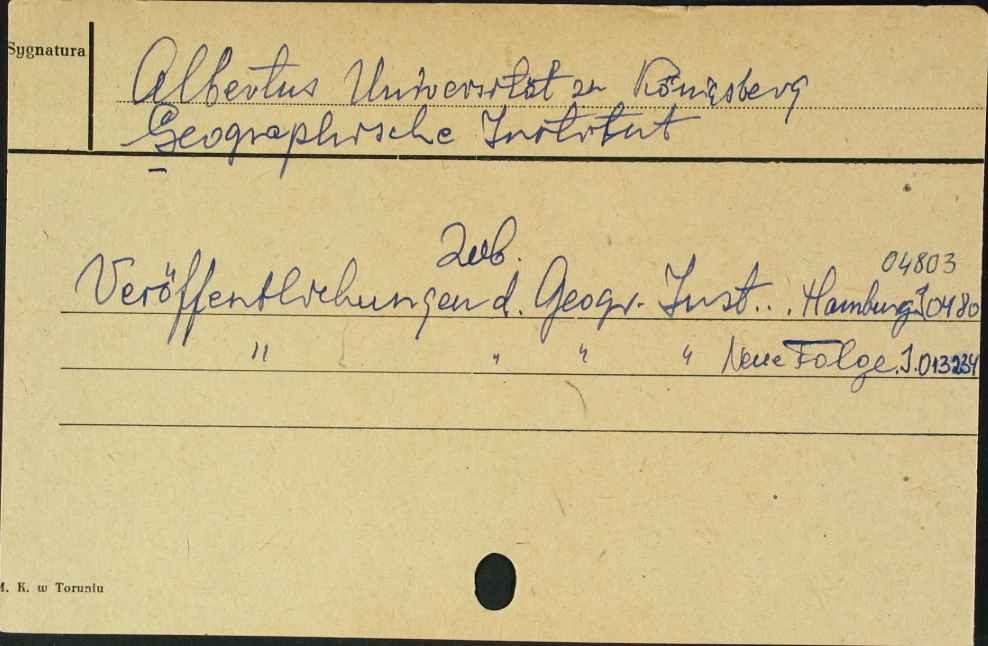 Sygnatura
Albertus Universität zu Königsberg
Geographische Institut
Zob.
04803
Veröffentlichungen d. Geogr. Inst. . . Hamburg J 0480
" " " " Neue Folge. J. 013234
M. K. w Toruniu